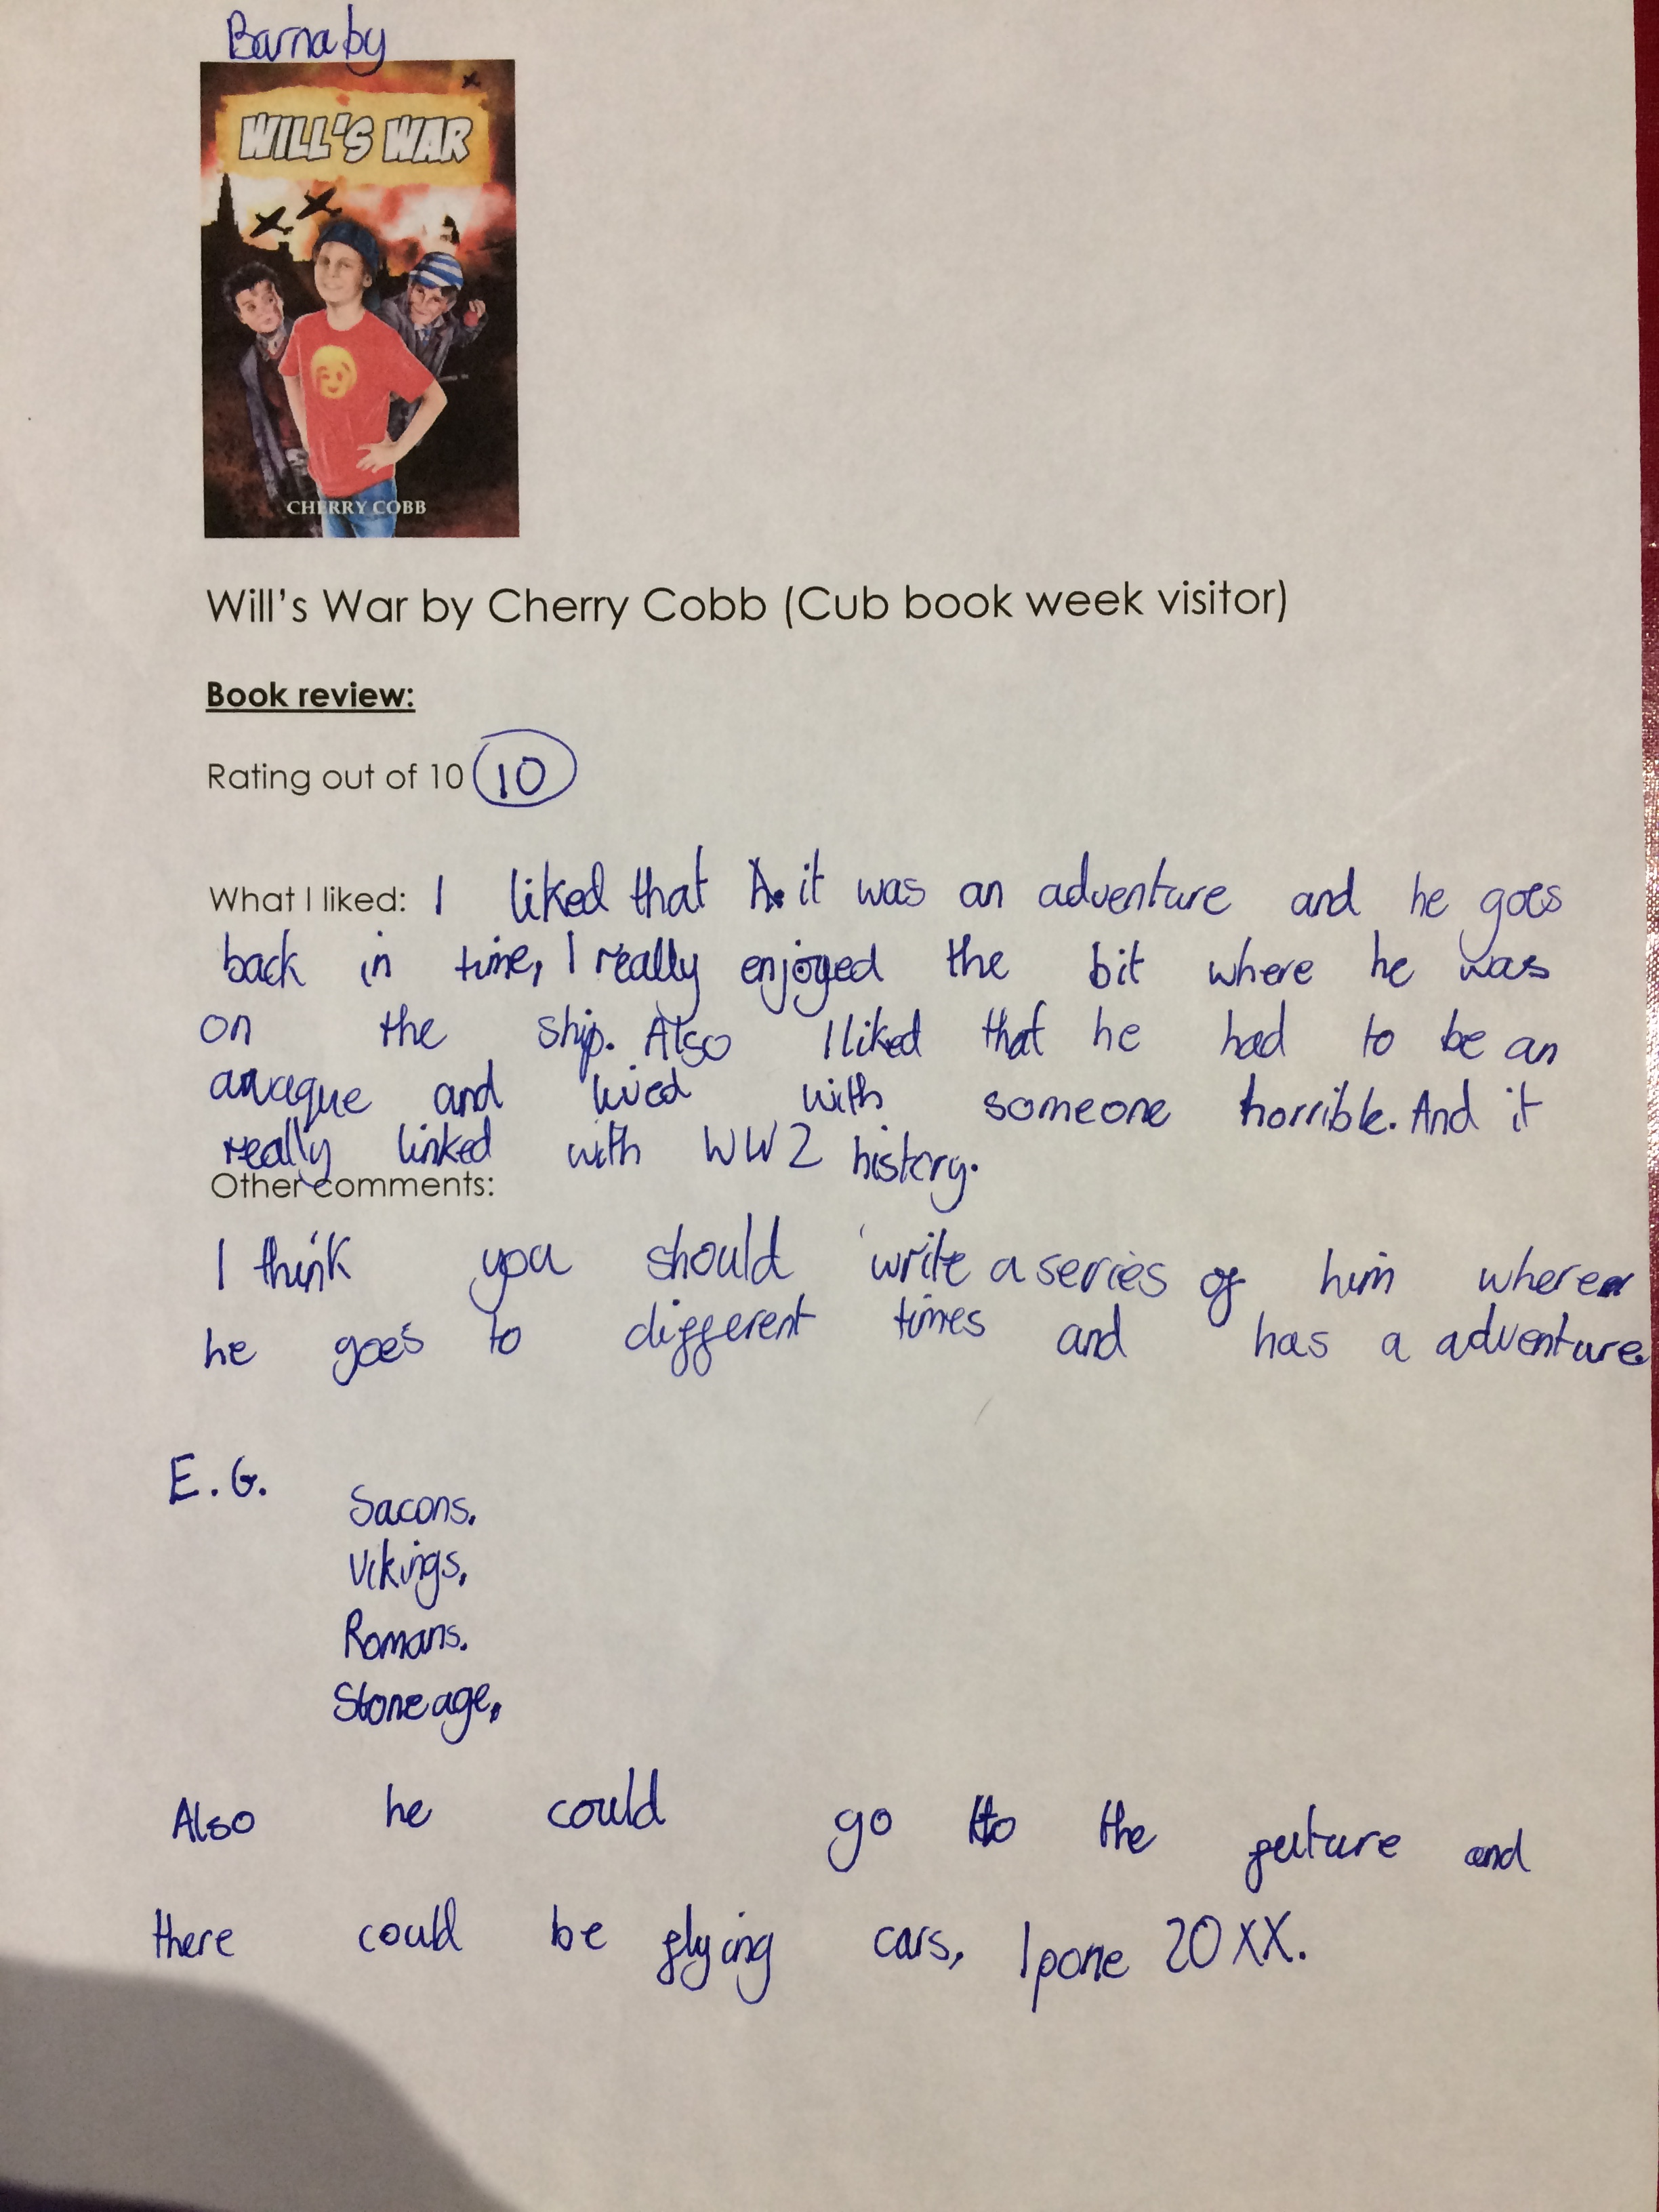 Barnaby
WILL'S WAR
CHERRY COBB
Will's War by Cherry Cobb (Cub book week visitor)
Book review:
Rating out of 10 10
What I liked: I liked that it was an adventure and he goes
back in time, I really enjoyed the bit where he was
on the ship. Also I liked that he had to be an
avaque and lived with someone horrible. And it
really linked with WW2 history.
Other comments:
I think you should write a series of him where
he goes to different times and has a adventure
E.G.
Sacons.
Vikings,
Romans.
Stone age,
Also he could go to the future and
there could be flying cars, Ipone 20XX.